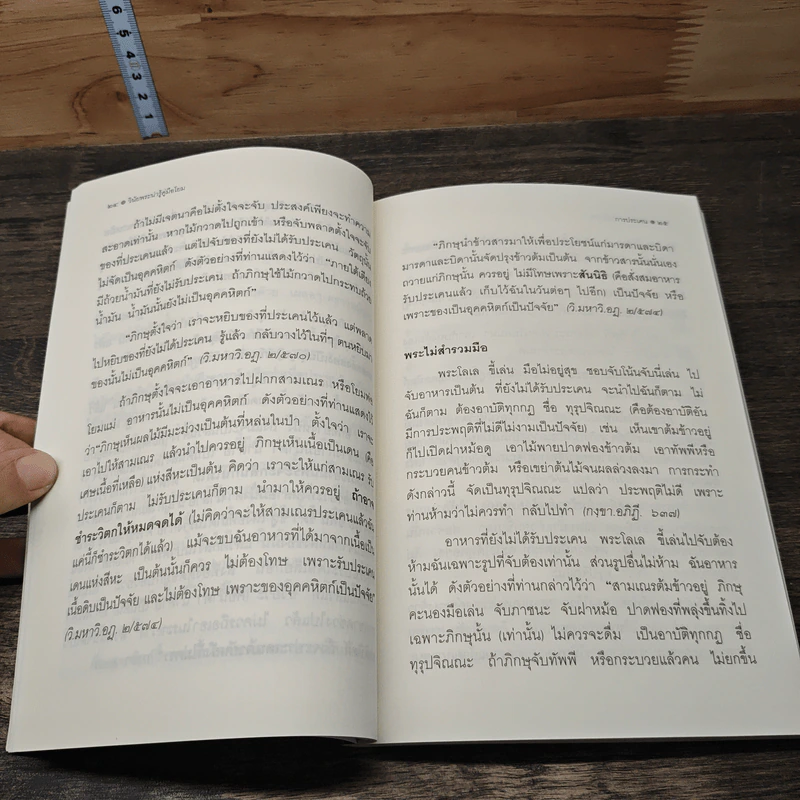 6
5
4
3
2
1
๒๔ ● วินัยพระน่ารู้คู่มือโยม
ถ้าไม่มีเจตนาคือไม่ตั้งใจจะจับ ประสงค์เพียงจะทำความ
สะอาดเท่านั้น หากไม้กวาดไปถูกเข้า หรือจับพลาดตั้งใจจะจับ
ของที่ประเคนแล้ว แต่ไปจับของที่ยังไม่ได้รับประเคน วัตถุนั้น
ไม่จัดเป็นอุคคหิตก์ ดังตัวอย่างที่ท่านแสดงไว้ว่า “ภายใต้เตียง
มีถ้วยน้ำมันที่ยังไม่รับประเคน ถ้าภิกษุใช้ไม้กวาดไปกระทบถ้วย
น้ำมัน น้ำมันนั้นยังไม่เป็นอุคคหิตก์”
“ภิกษุตั้งใจว่า เราจะหยิบของที่ประเคนไว้แล้ว แต่พลาด
ไปหยิบของที่ยังไม่ได้ประเคน รู้แล้ว กลับวางไว้ในที่ๆ ตนหยิบมา
ของนั้นไม่เป็นอุคคหิตก์” (วิ.มหาวิ.อฏ. ๒/๕๗๐)
ถ้าภิกษุตั้งใจจะเอาอาหารไปฝากสามเณร หรือโยมพ่อ
โยมแม่ อาหารนั้นไม่เป็นอุคคหิตก์ ดังตัวอย่างที่ท่านแสดงไว้
ว่า“ภิกษุเห็นผลไม้มีมะม่วงเป็นต้นที่หล่นในป่า ตั้งใจว่า เราจะ
เอาไปให้สามเณร แล้วนำไปควรอยู่ ภิกษุเห็นเนื้อเป็นเดน (คือ
เศษเนื้อที่เหลือ) แห่งสีหะเป็นต้น คิดว่า เราจะให้แก่สามเณร รับ
ประเคนก็ตาม ไม่รับประเคนก็ตาม นำมาให้ควรอยู่ ถ้าอาจ
ชำระวิตกให้หมดจดได้ (ไม่คิดว่าจะให้สามเณรประเคนแล้วฉัน
แค่นี้ก็ชำระวิตกได้แล้ว) แม้จะขบฉันอาหารที่ได้มาจากเนื้อเป็น
เดนแห่งสีหะ เป็นต้นนั้นก็ควร ไม่ต้องโทษ เพราะรับประเคน
เนื้อดิบเป็นปัจจัย และไม่ต้องโทษ เพราะของอุคคหิตก์เป็นปัจจัย”
(วิ.มหาวิ.อฏ. ๒/๕๗๔)
การประเคน ● ๒๕
“ภิกษุนำข้าวสารมาให้เพื่อประโยชน์แก่มารดาและบิดา
มารดาและบิดานั้นจัดปรุงข้าวต้มเป็นต้น จากข้าวสารนั้นนั่นเอง
ถวายแก่ภิกษุนั้น ควรอยู่ ไม่มีโทษเพราะสันนิธิ (คือสั่งสมอาหาร
รับประเคนแล้ว เก็บไว้ฉันในวันต่อๆ ไปอีก) เป็นปัจจัย หรือ
เพราะของเป็นอุคคหิตก์เป็นปัจจัย” (วิ.มหาวิ.อฏ. ๒/๕๗๔)
พระไม่สำรวมมือ
พระโลเล ขี้เล่น มือไม่อยู่สุข ชอบจับโน้นจับนี่เล่น ไป
จับอาหารเป็นต้น ที่ยังไม่ได้รับประเคน จะนำไปฉันก็ตาม ไม่
ฉันก็ตาม ต้องอาบัติทุกกฏ ชื่อ ทุรุปจิณณะ (คือต้องอาบัติอัน
มีการประพฤติที่ดีไม่งามเป็นปัจจัย) เช่น เห็นเขาต้มข้าวอยู่
ก็ไปเปิดฝาหม้อดู เอาไม้พายปาดฟองข้าวต้ม เอาทัพพีหรือ
กระบวยคนข้าวต้ม หรือเขย่าต้นไม้จนผลล่วงลงมา การกระทำ
ดังกล่าวนี้ จัดเป็นทุรุปจิณณะ แปลว่า ประพฤติไม่ดี เพราะ
ท่านห้ามว่าไม่ควรทำ กลับไปทำ (กงฺขา.อภิฎี. ๖๓๗)
อาหารที่ยังไม่ได้รับประเคน พระโลเล ขี้เล่นไปจับต้อง
ห้ามฉันเฉพาะรูปที่จับต้องเท่านั้น ส่วนรูปอื่นไม่ห้าม ฉันอาหาร
นั้นได้ ดังตัวอย่างที่ท่านกล่าวไว้ว่า “สามเณรต้มข้าวอยู่ ภิกษุ
คะนองมือเล่น จับภาชนะ จับฝาหม้อ ปาดฟองที่พลุ่งขึ้นทิ้งไป
เฉพาะภิกษุนั้น (เท่านั้น) ไม่ควรจะดื่ม เป็นอาบัติทุกกฏ ชื่อ
ทุรุปจิณณะ ถ้าภิกษุจับทัพพี หรือกระบวยแล้วคน ไม่ยกขึ้น